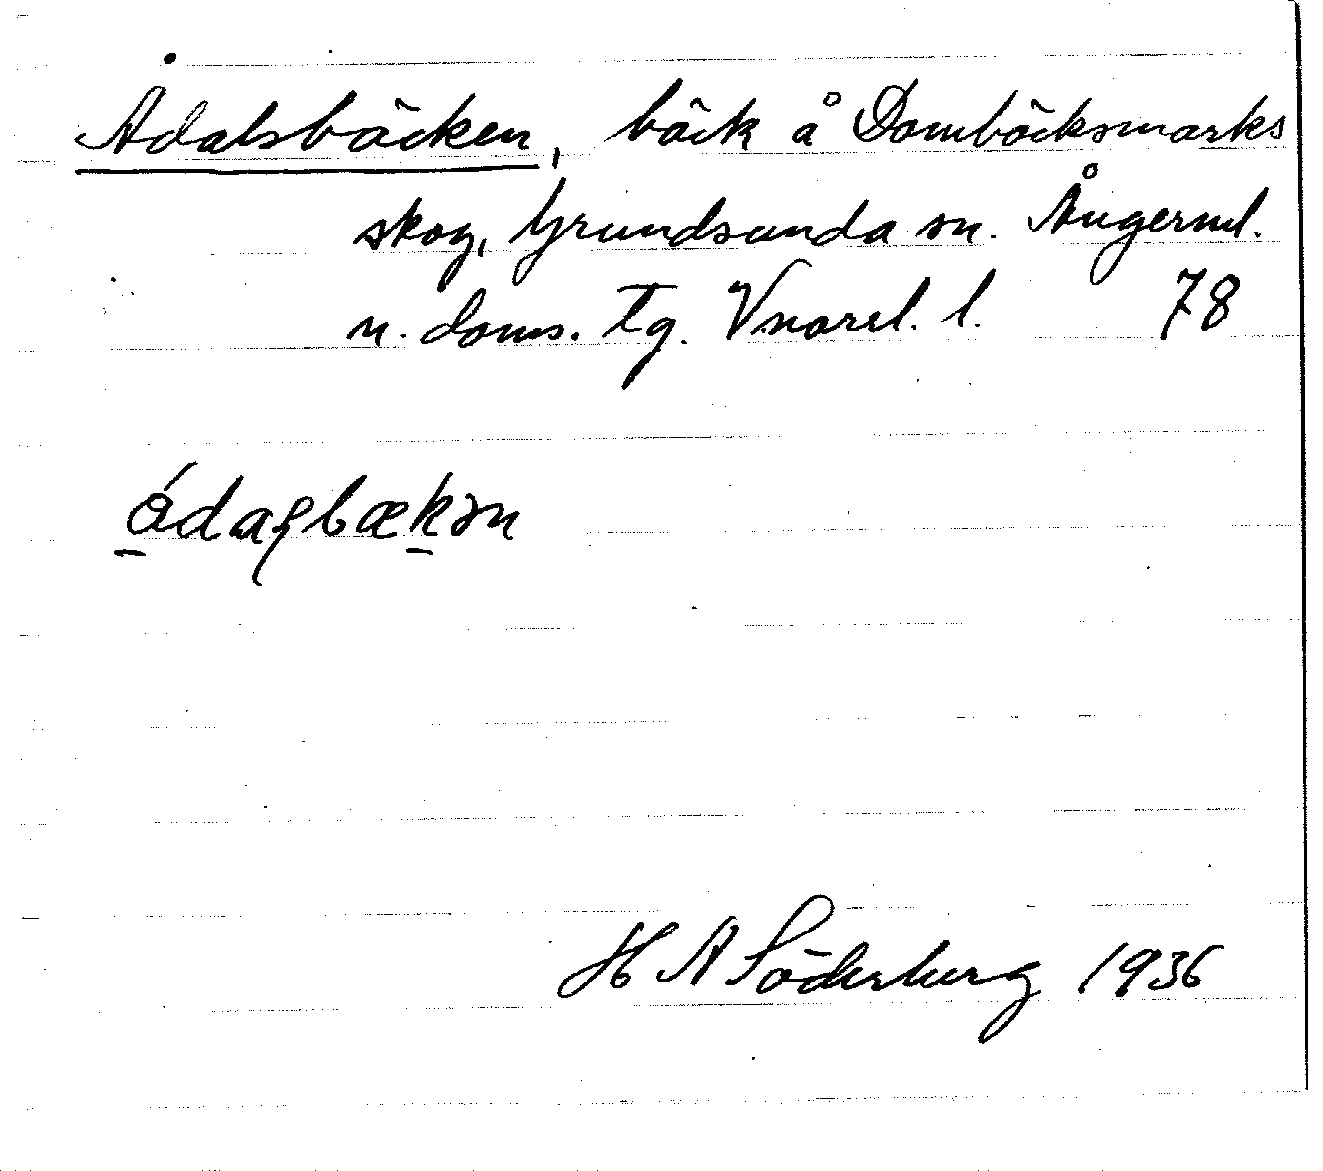 Ådalsbäcken, bäck å Dombäcksmarks
skog, Grundsunda sn. Ångerml.
n. doms. tg. Vnorrl. l. 78
ådaꞎbækən
H A Söderberg 1936